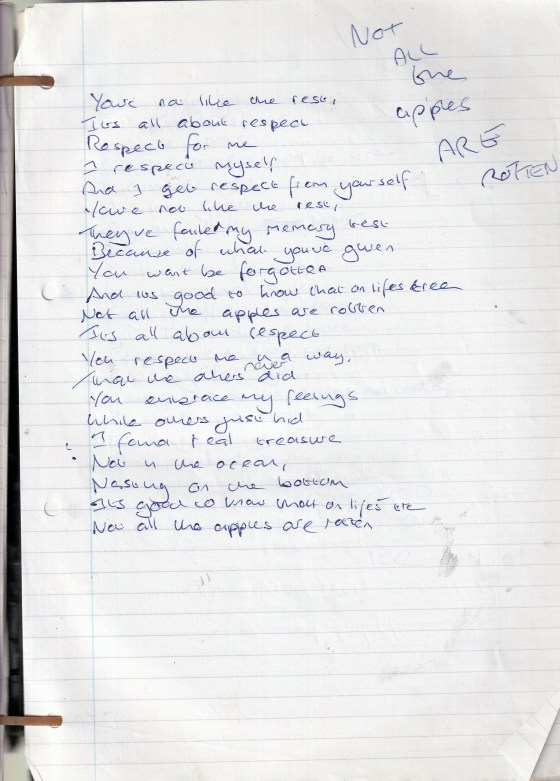 NOT
ALL
the
apples
ARE
ROTTEN
You're not like the rest,
It's all about respect
Respect for me
I respect myself
And I get respect from yourself
You're not like the rest,
They've failed my memory test
Because of what you've given
You wont be forgotten
And its good to know that on lifes tree
Not all the apples are rotten
It's all about respect
You respect me in a way,
That the others never did
You embrace my feelings
While others just hid
I found real treasure
Not in the ocean,
Nesting on the bottom
It's good to know that on life's tree
Not all the apples are rotten